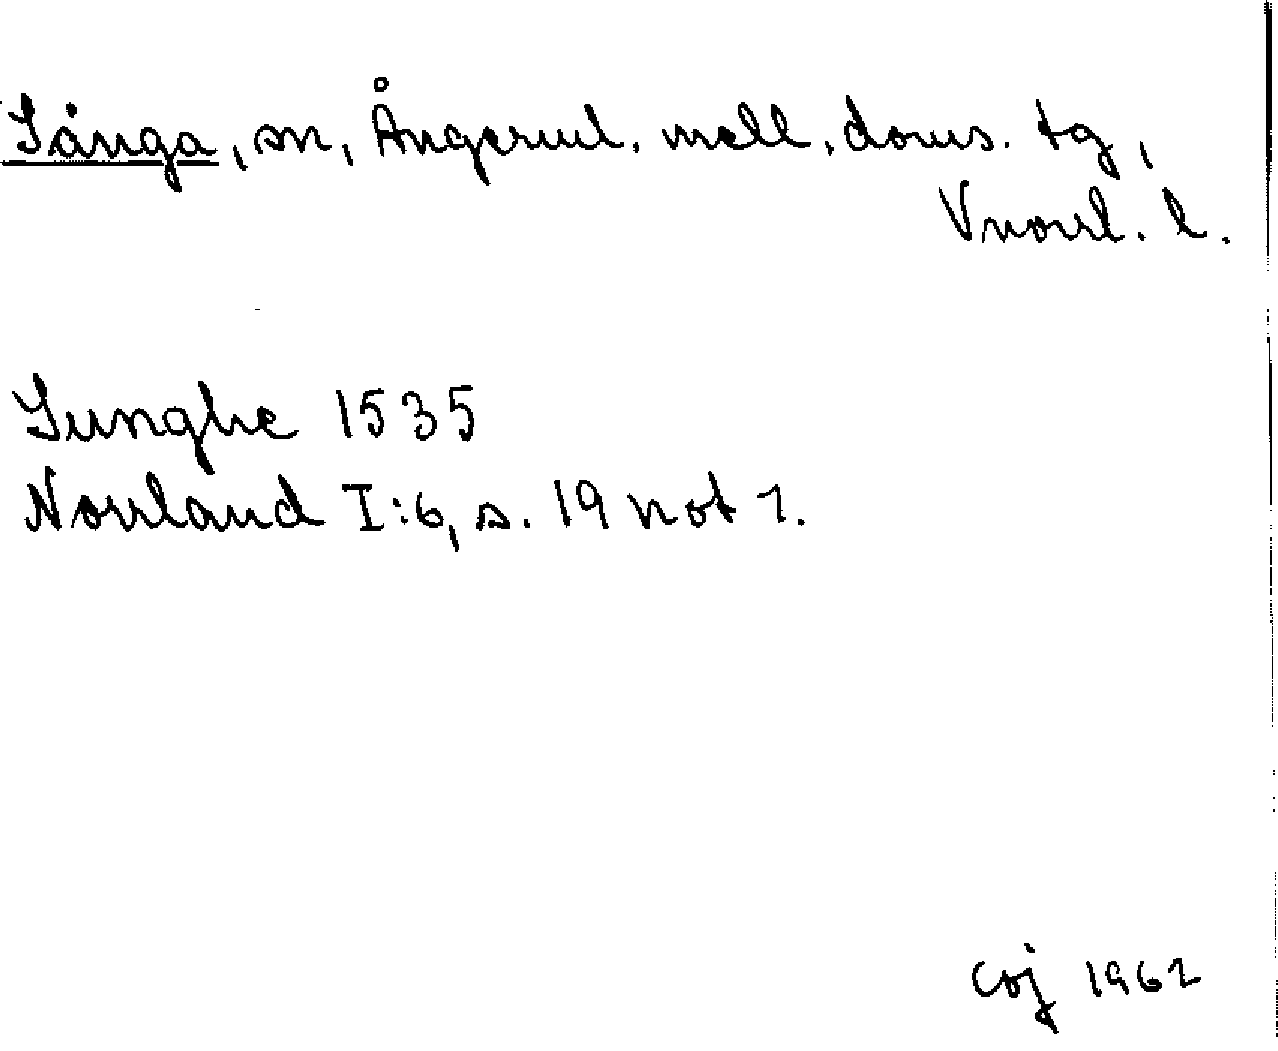 Sånga, sn, Ångerml. mell. doms. tg,
Vnorrl. l.
Sunghe 1535
Norrland I:6, s. 19 not 1.
COJ 1962